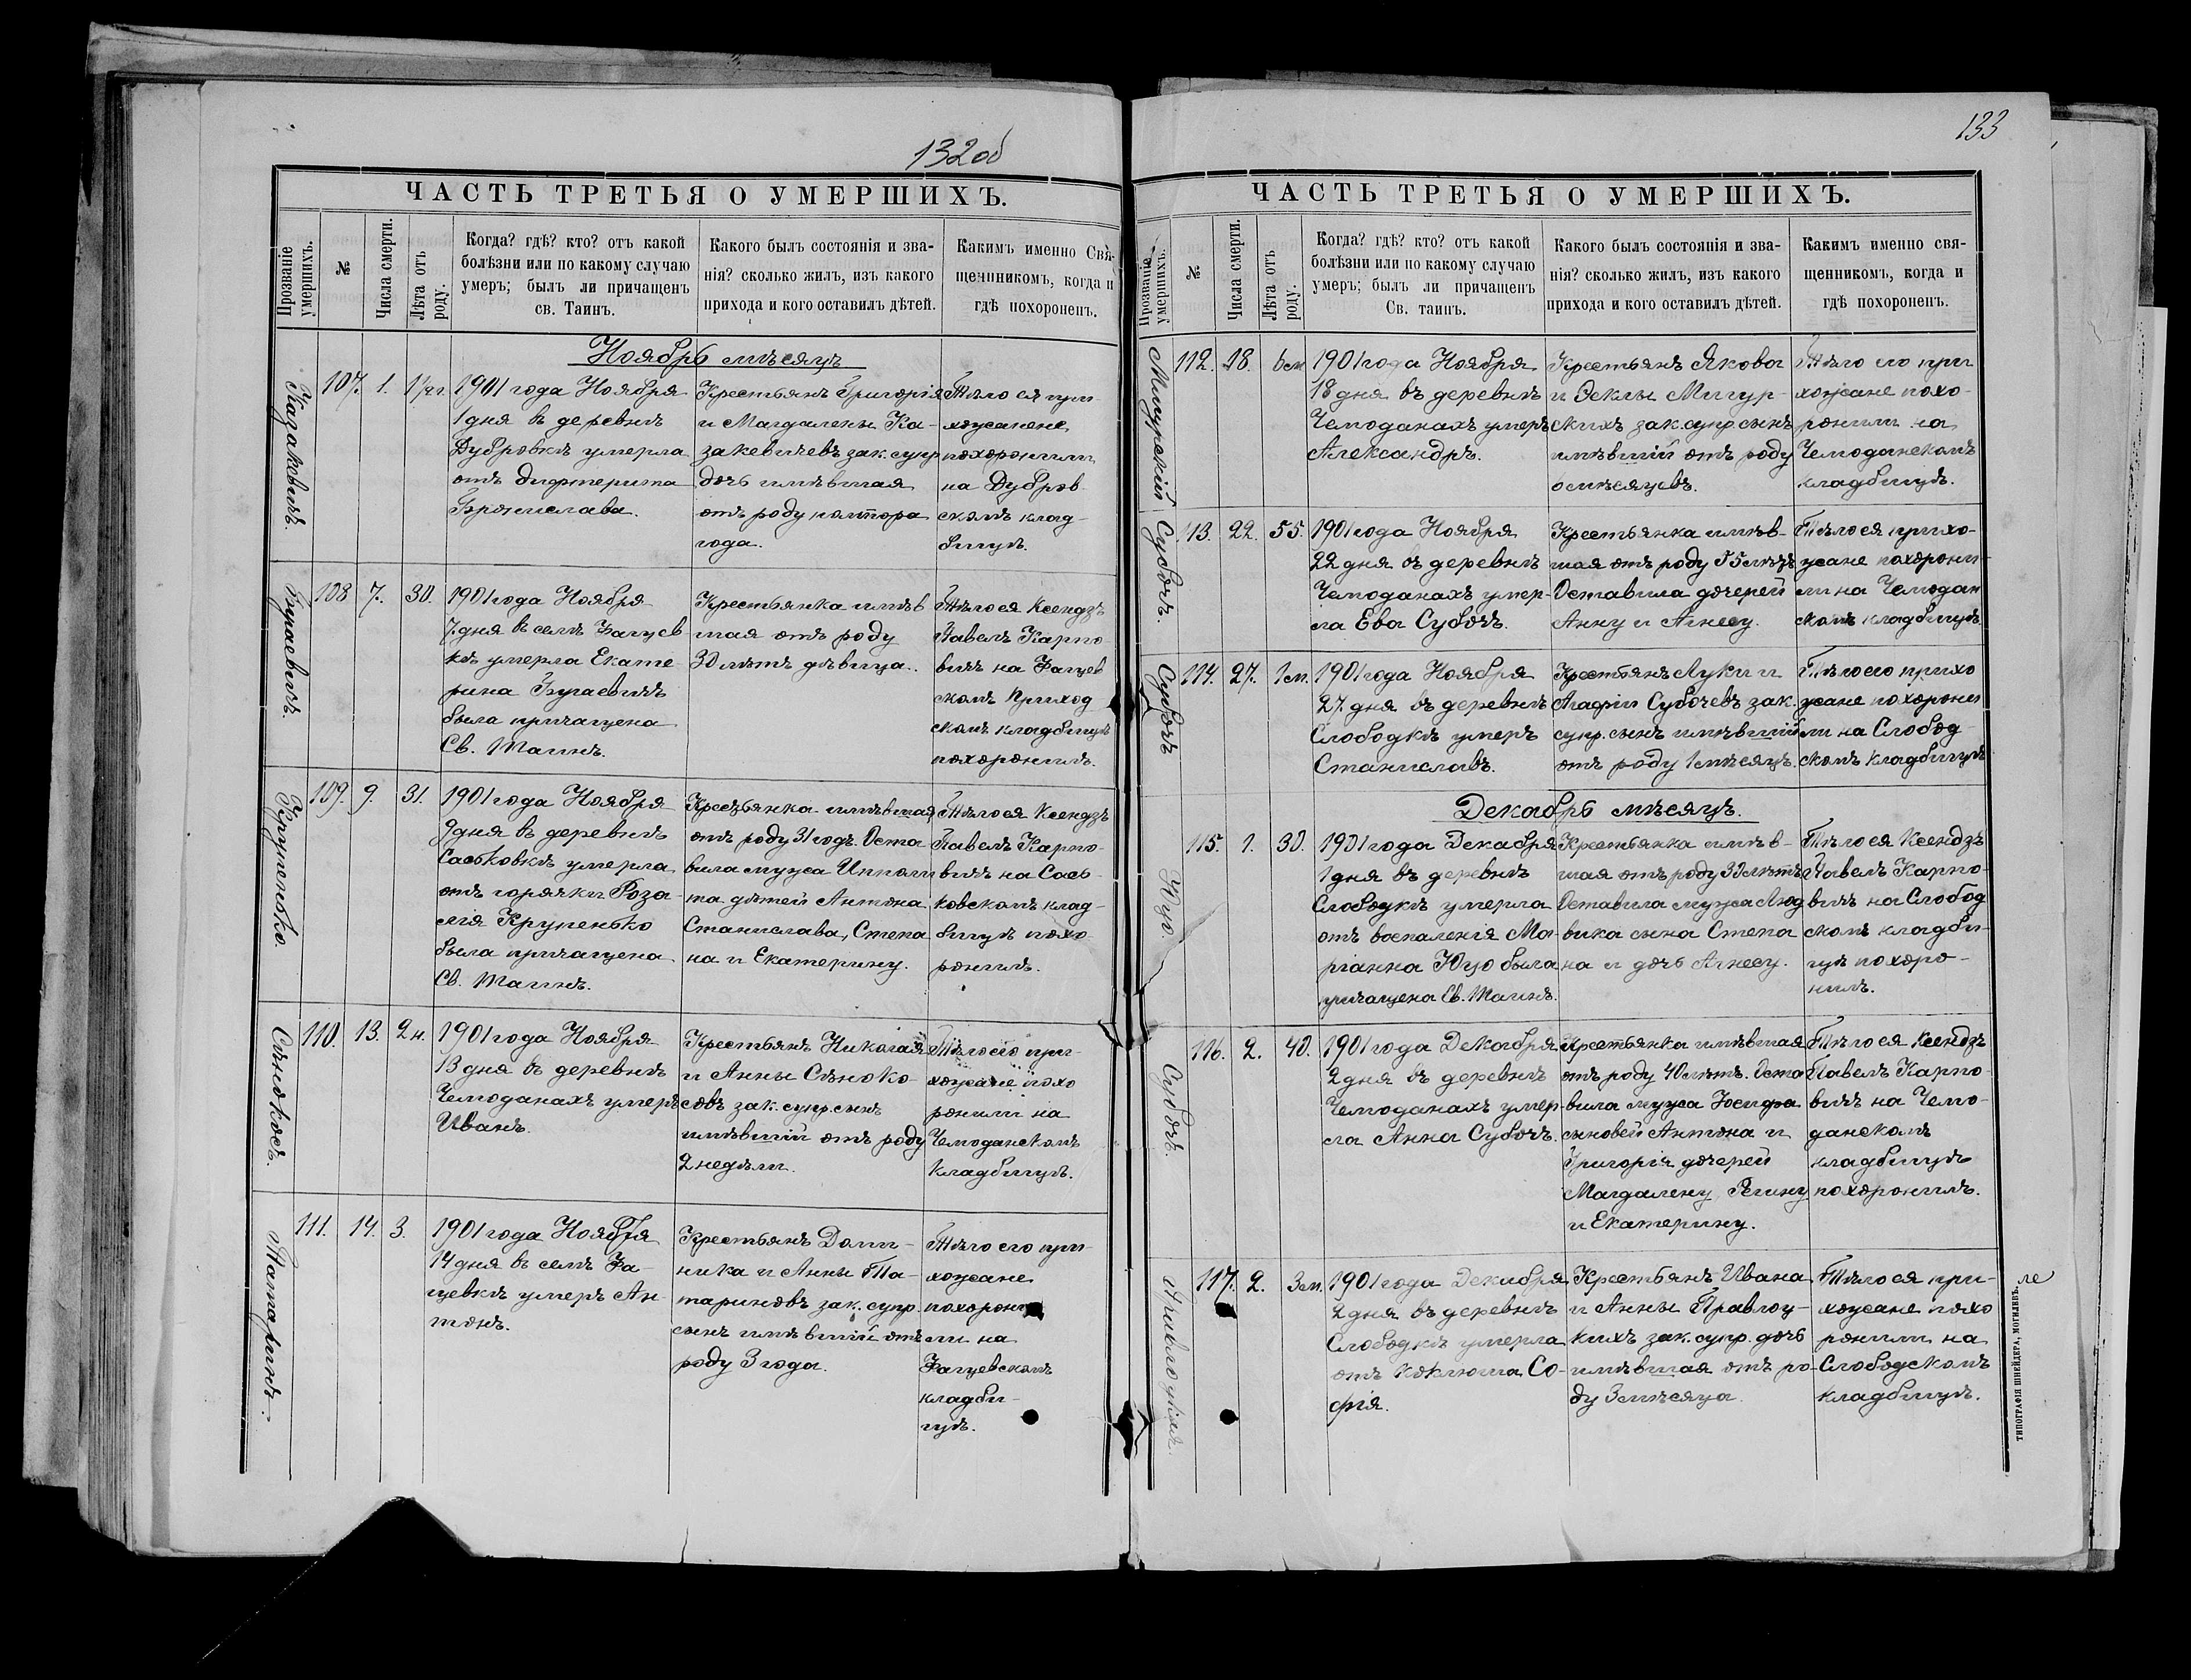 132 об
ЧАСТЬ ТРЕТЬЯ О УМЕРШИХЪ.
Прозваніе умершихъ.
№
Числа смерти.
Лѣта отъ роду.
Когда? гдѣ? кто? отъ какой
болѣзни или по какому случаю
умеръ; былъ ли причащенъ
св. Таинъ.
Какого былъ состоянія и зва-
нія? сколько жилъ, изъ какого
прихода и кого оставилъ дѣтей.
Какимъ именно Свя-
щенникомъ, когда и
гдѣ похороненъ.
Ноябрь мѣсяцъ
Казакевичъ.
107. 1.
1901 года Ноября
1 дня въ деревнѣ
Дубровкѣ умерла
отъ дифтерита
Бронислава.
Крестьянъ Григорія
и Магдалены Ка-
закевичевъ зак. супр
дочь имѣвшая
отъ роду полтора
года.
Тѣло ея при-
хожанене
похоронили
на Дубров
скомъ клад-
бищѣ.
Бугаевичъ.
108 7. 30.
1901 года Ноября
7 дня въ селѣ Фащев
кѣ умерла Екате
рина Бугаевичъ
была причащена
Св. Таинъ.
Крестьянка имѣв
шая отъ роду
30 лѣтъ дѣвица.
Тѣло ея Ксендзъ
Павелъ Карпо
вичъ на Фащев
скомъ Приход
скомъ кладбищѣ
похоронилъ.
Крупенько.
109. 9. 31.
1901 года Ноября
9 дня въ деревнѣ
Саськовкѣ умерла
отъ горячки Роза-
лія Крупенько
была причащена
Св. Таинъ.
Крестьянка имѣвшая
отъ роду 31 годъ. Оста
вила мужа Ипполи
та дѣтей Антона
Станислава, Степа
на и Екатерину.
Тѣло ея Ксендзъ
Павелъ Карпо-
вичъ на Сась-
ковскомъ клад-
бищѣ похо-
ронилъ.
Сѣнокосъ.
110. 13. 2 н.
1901 года Ноября
13 дня въ деревнѣ
Чемоданахъ умеръ
Иванъ.
Крестьянъ Николая
и Анны Сѣноко-
совъ зак. супр. сынъ
имѣвшій отъ роду
2 недѣли.
Тѣло его при-
хожане похо
ронили на
Чемоданскомъ
кладбищѣ.
Татаринъ.
111. 14. 3.
1901 года Ноября
14 дня въ селѣ Фа-
щевкѣ умеръ Ан-
тонъ.
Крестьянъ Доми-
ника и Анны Та-
тариновъ зак. супр.
сынъ имѣвшій отъ
роду 3 года.
Тѣло его при-
хожане
похорони
ли на
Фащевскомъ
кладби-
щѣ.
133
ЧАСТЬ ТРЕТЬЯ О УМЕРШИХЪ.
Прозваніе умершихъ.
№
Числа смерти.
Лѣта отъ роду.
Когда? гдѣ? кто? отъ какой
болѣзни или по какому случаю
умеръ; былъ ли причащенъ
Св. таинъ.
Какого былъ состоянія и зва-
нія? сколько жилъ, изъ какого
прихода и кого оставилъ дѣтей.
Какимъ именно свя-
щенникомъ, когда и
гдѣ похороненъ.
Мигурскій
112. 18.
1901 года Ноября
18 дня въ деревнѣ
Чемоданахъ умеръ
Александръ.
Крестьянъ Якова
и Феклы Мигур-
скихъ зак. супр. сынъ
имѣвшій отъ роду
мѣсяцевъ.
Тѣло его при
хожане похо-
ронили на
Чемоданскомъ
кладбищѣ.
Субочъ.
113. 22. 55.
1901 года Ноября
22 дня въ деревнѣ
Чемоданахъ умер-
ла Ева Субочъ.
Крестьянка имѣв-
шая отъ роду 55 лѣтъ
Оставила дочерей
Анну и Агнесу.
Тѣло ея прихо-
жане похорони-
ли на Чемодан
скомъ кладбищѣ.
Субочъ
114. 27. 1 м.
1901 года Ноября
27 дня въ деревнѣ
Слободкѣ умеръ
Станиславъ.
Крестьянъ Луки и
Агафіи Субочевъ зак.
супр. сынъ имѣвшій
отъ роду 1 мѣсяцъ.
Тѣло его прихо
жане похорони
ли на Слобод-
скомъ кладбищѣ
Декабрь мѣсяцъ.
Юцо.
115. 1. 30.
1901 года Декабря
1 дня въ деревнѣ
Слободкѣ умерла
отъ воспаленія Ма-
ріанна Юцо была
причащена Св. Таинъ.
Крестьянка имѣв-
шая отъ роду 30 лѣтъ
Оставила мужа Люд
вика сына Степа
на и дочь Агнесу.
Тѣло ея Ксендзъ
Павелъ Карпо-
вичъ на Слобод
скомъ кладби-
щѣ похоро-
нилъ.
Субочъ.
116. 2. 40.
1901 года Декабря
2 дня въ деревнѣ
Чемоданахъ умер-
ла Анна Субочъ.
Крестьянка имѣвшая
отъ роду 40 лѣтъ. Оста
вила мужа Іосифа
сыновей Антона и
Григорія дочерей
Магдалену, Регину
и Екатерину.
Тѣло ея Ксендзъ
Павелъ Карпо-
вичъ на Чемо-
данскомъ
кладбищѣ
похоронилъ.
117. 2. 3 м.
1901 года Декабря
2 дня въ деревнѣ
Слободкѣ умерла
отъ коклюша Со-
фія.
Крестьянъ Ивана
и Анны Правлоц-
кихъ зак. супр. дочь
имѣвшая отъ ро-
ду 3 мѣсяца.
Тѣло ея при-
хожане похо
ронили на
Слободскомъ
кладбищѣ.
ТИПОГРАФІЯ ШНЕЙДЕРА, МОГИЛЕВЪ.